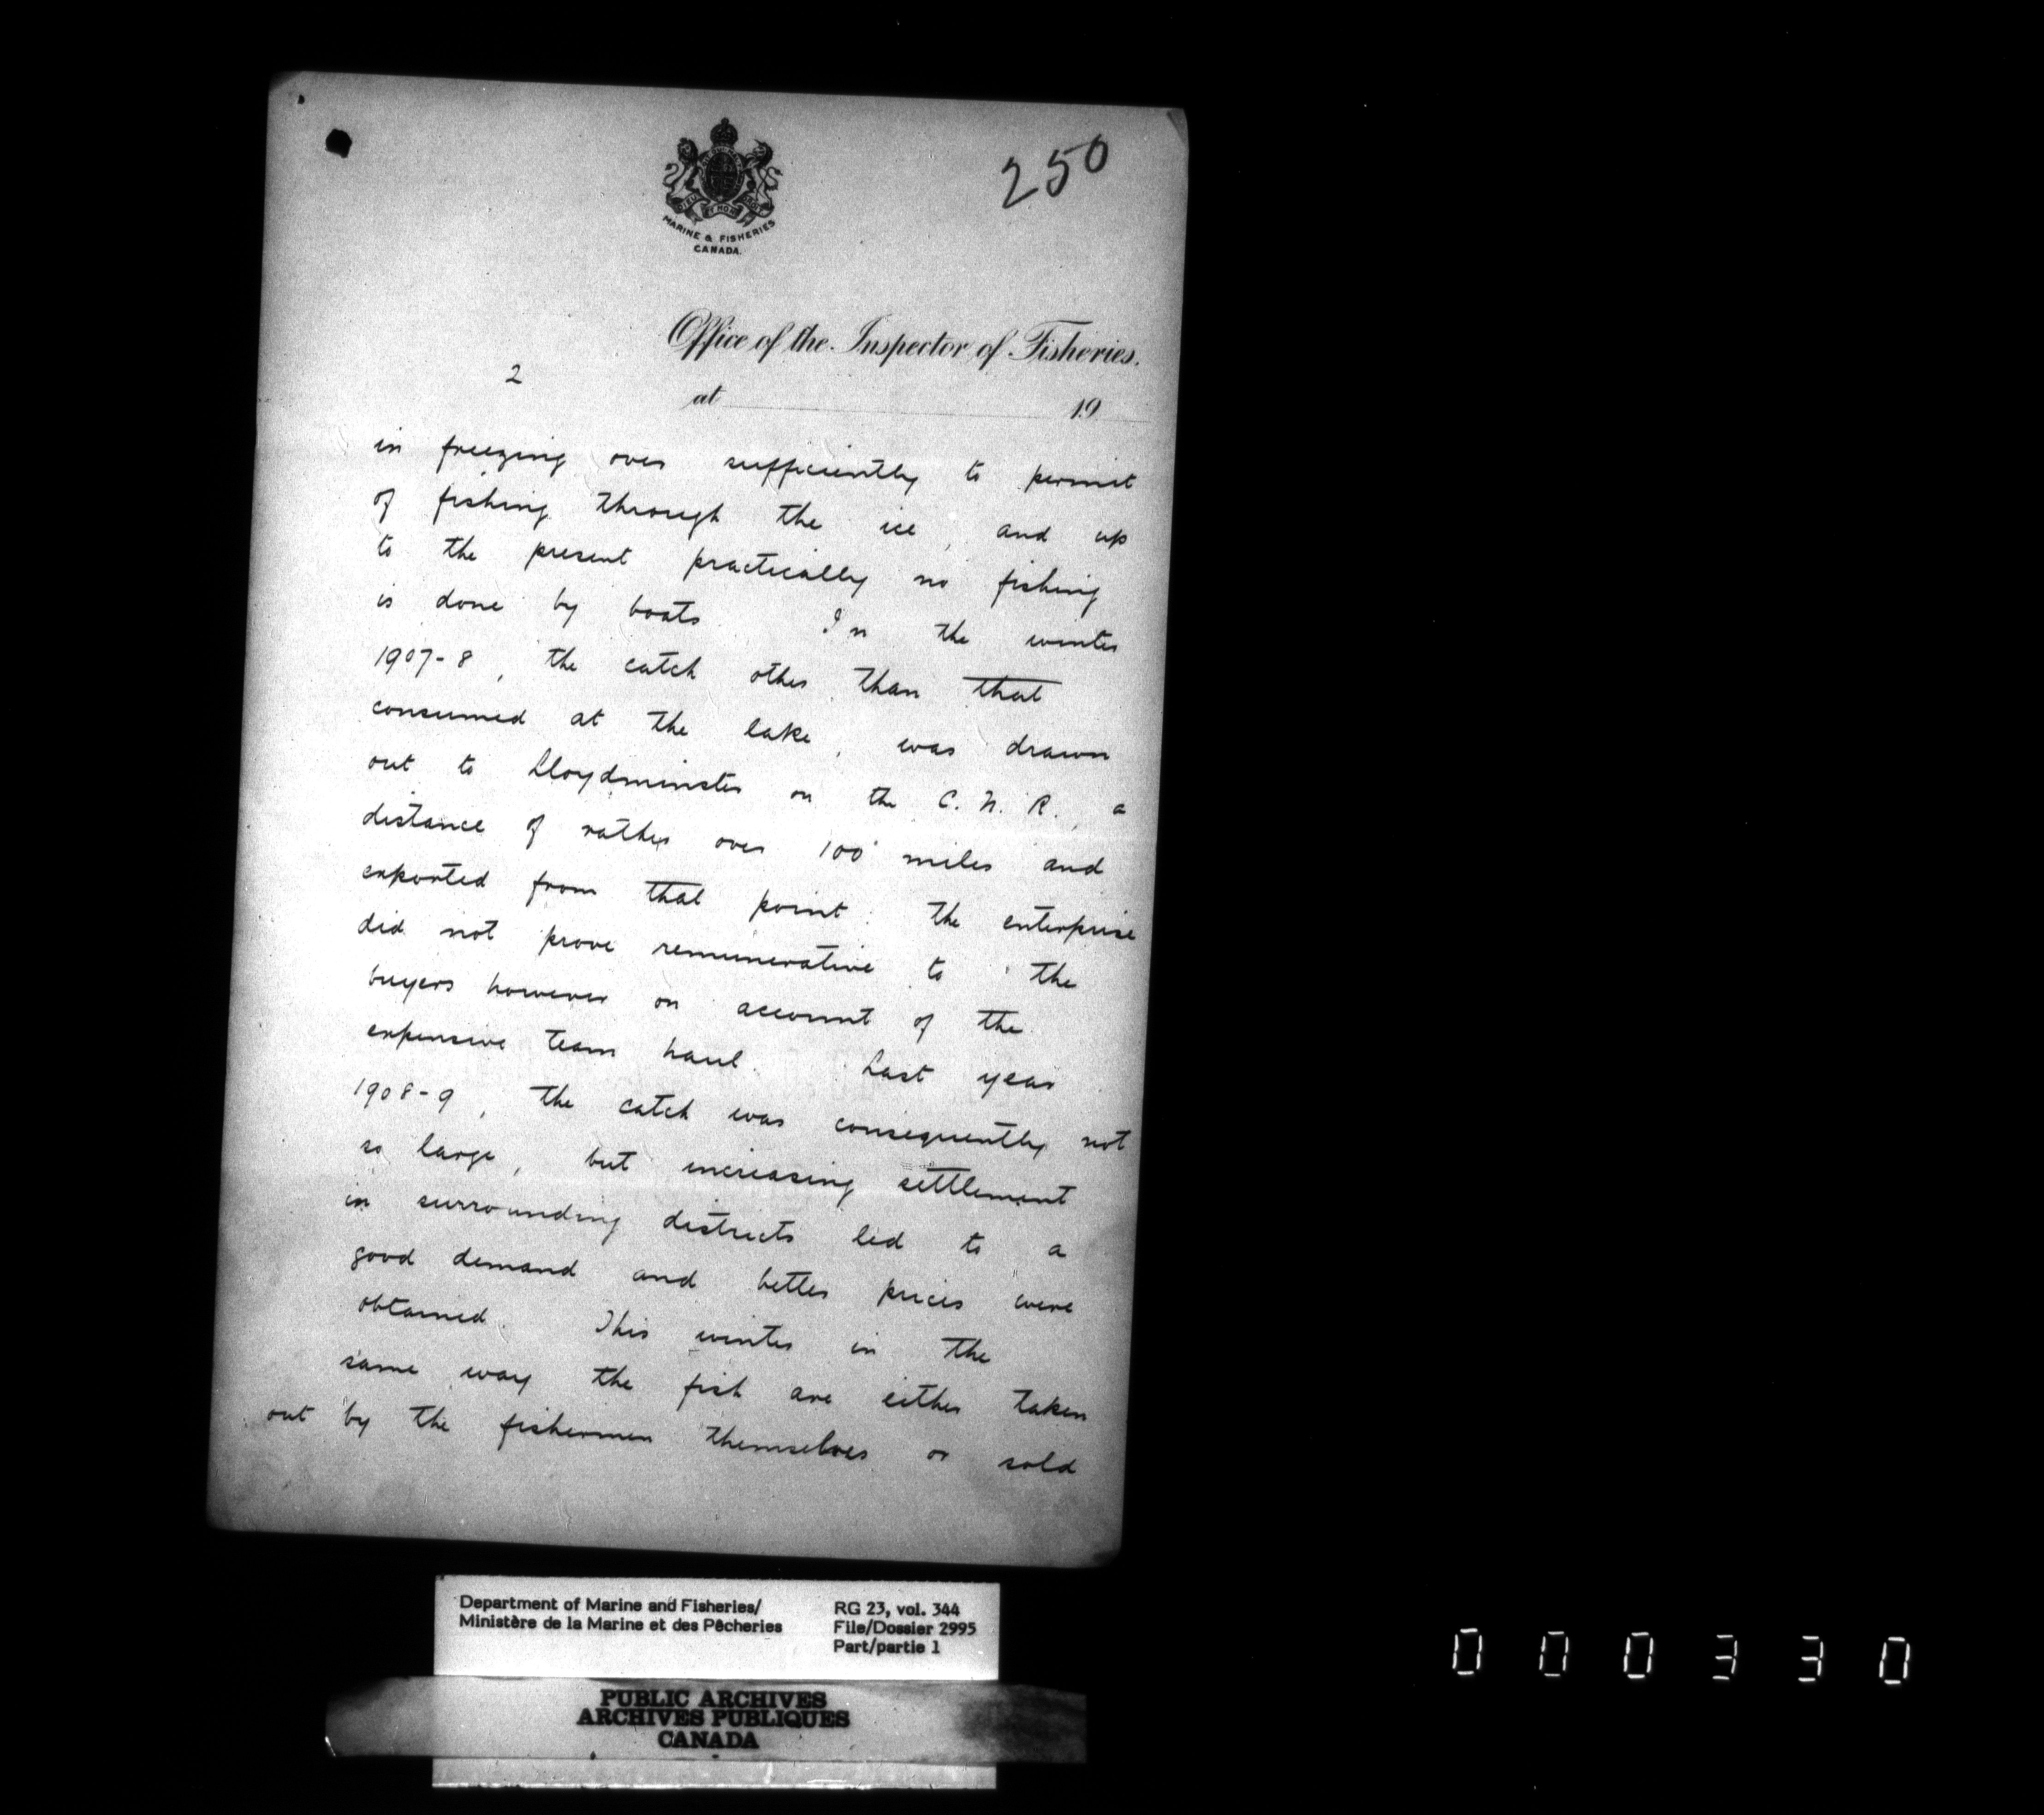 250
MARINE & FISHERIES
CANADA.
Office of the Inspector of Fisheries.
2
at 19
in freezing over sufficiently to permit
of fishing through the ice, and up
to the present practically no fishing
is done by boats. In the winter
1907-8, the catch other than that
consumed at the lake, was drawn
out to Lloydminster on the C. N. R., a
distance of rather over 100 miles and
exported from that point. The enterprise
did not prove remunerative to the
buyers however on account of the
expensive team haul. Last year
1908-9, the catch was consequently not
so large, but increasing settlement
in surrounding districts led to a
good demand and better prices were
obtained. This winter in the
same way the fish are either taken
out by the fishermen themselves or sold
Department of Marine and Fisheries/
Ministère de la Marine et des Pêcheries
RG 23, vol. 344
File/Dossier 2995
Part/partie 1
PUBLIC ARCHIVES
ARCHIVES PUBLIQUES
CANADA
000330